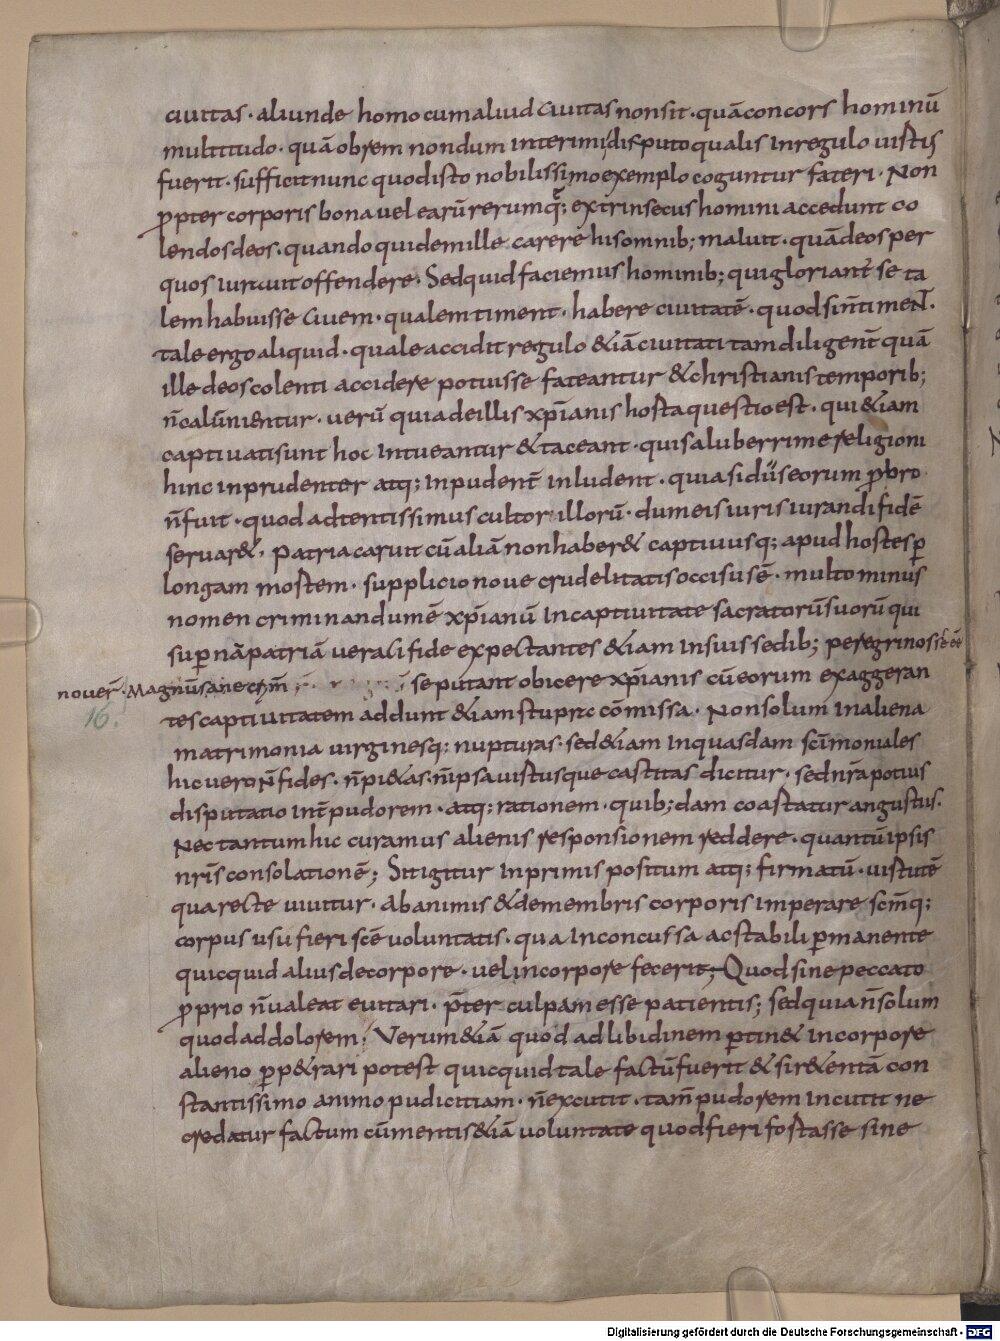 ciuitas · aliunde homo cum aliud ciuitas non sit · quā concors hominū
multitudo · quā obrem nondum interim disputo qualis in regulo uirtus
fuerit · sufficit nunc quod isto nobilissimo exemplo coguntur fateri · Non
ꝓpter corporis bona uel earū rerum q; extrinsecus homini accedunt co
lendos deos · quando quidem ille carere his omnib; maluit · quā deos per
quos iurauit offendere · Sed quid faciemus hominib; qui gloriant̄ se ta
lem habuisse ciuem · qualem timent · habere ciuitatē · quod si n̄ timent ·
tale ergo aliquid · quale accidit regulo &iā ciuitati tam diligent̄ quā
ille deos colenti accidere potuisse fateantur & christianis temporib;
n̄ calūnientur · uerū quia de illis xp̄ianis horta questio est · qui &iam
captiuati sunt hoc intueantur & taceant · qui saluberrime religioni
hinc inprudenter atq; inpudent̄ inludent · quia si diis eorum ꝓbro
n̄ fuit · quod adtentissimus cultor illorū · dum eis iuris iurandi fidē
seruar& · patria caruit cū aliā non haber& captiuusq; apud hostes ꝑ
longam mortem · supplicio noue crudelitatis occisus ē · multo minus
nomen criminandum ē xp̄ianū in captiuitate sacratorū suorū qui
suꝑnā patriā ueraci fide expectantes &iam in suis sedib; peregrinos se eē
nouer̄ · Magnū sane crim̄ se putant obicere xp̄ianis cū eorum exaggeran
16.
tes captiuitatem addunt &iam stupra cōmissa · Non solum in aliena
matrimonia uirginesq; nupturas · sed &iam in quasdam sc̄imoniales
hic uero n̄ fides · n̄ pi&as · n̄ ipsa uirtus que castitas dicitur · sed nr̄a potius
disputatio int̄ pudorem · atq; rationem · quib;dam coartatur angustiis ·
Nec tantum hic curamus alienis responsionem reddere · quantū ipsis
nr̄is consolationē; Sit igitur inprimis positum atq; firmatū · uirtutē
qua recte uiuitur · ab animis &de membris corporis imperare sc̄mq;
corpus usu fieri sc̄e uoluntatis · qua inconcussa ac stabili ꝑmanente
quicquid alius de corpore · uel in corpore fecerit; Quod sine peccato
ꝓprio n̄ ualeat euitari · p̄ter culpam esse patientis; sed quia n̄ solum
quod ad dolorem · Verum &iā quod ad libidinem ꝑtin& in corpore
alieno ꝑp&rari potest quicquid tale factū fuerit & si r&entā con
stantissimo animo pudicitiam · n̄ excutit · tam̄ pudorem incutit ne
credatur factum cū mentis &iā uoluntate quod fieri fortasse sine
Digitalisierung gefördert durch die Deutsche Forschungsgemeinschaft - DFG